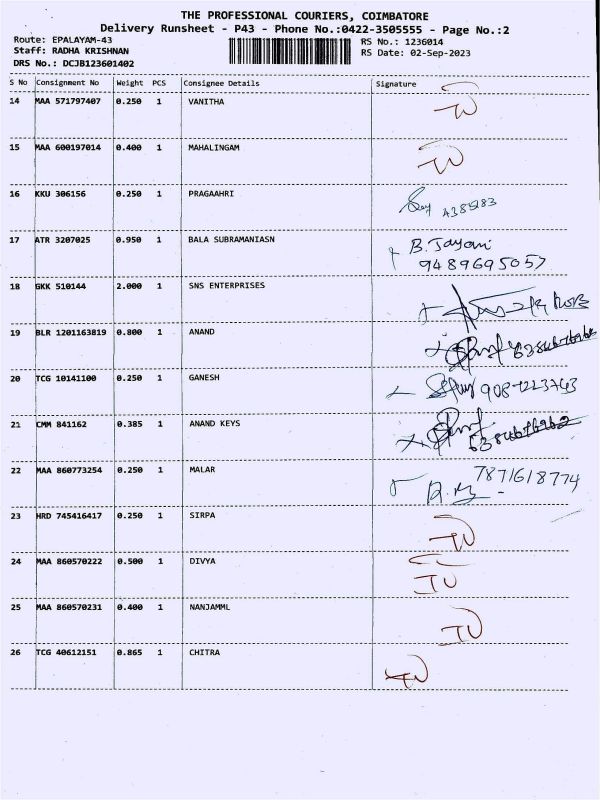 THE PROFESSIONAL COURIERS, COIMBATORE
Delivery Runsheet - P43 - Phone No.:0422-3505555 - Page No.:2
Route: EPALAYAM-43 RS No.: 1236014
Staff: RADHA KRISHNAN RS Date: 02-Sep-2023
DRS No.: DCJB123601402
S No Consignment No Weight PCS Consignee Details Signature
14 MAA 571797407 0.250 1 VANITHA
15 MAA 600197014 0.400 1 MAHALINGAM
16 KKU 306156 0.250 1 PRAGAAHRI
17 ATR 3207025 0.950 1 BALA SUBRAMANIASN B. Jayani
9489695057
18 GKK 510144 2.000 1 SNS ENTERPRISES
19 BLR 1201163819 0.800 1 ANAND
20 TCG 10141100 0.250 1 GANESH 9087223743
21 CMM 841162 0.385 1 ANAND KEYS
22 MAA 860773254 0.250 1 MALAR 7871618774
23 HRD 745416417 0.250 1 SIRPA
24 MAA 860570222 0.500 1 DIVYA
25 MAA 860570231 0.400 1 NANJAMML
26 TCG 40612151 0.865 1 CHITRA